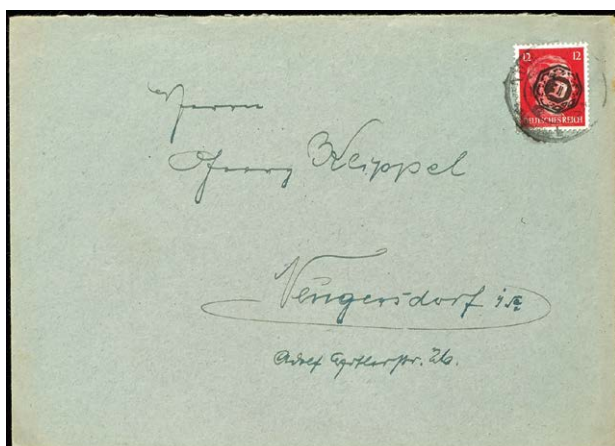 12 12
DEUTSCHES REICH
Herrn
Georg Klippel
Neugersdorf i/Sa
Adolf Hitlerstr. 26.